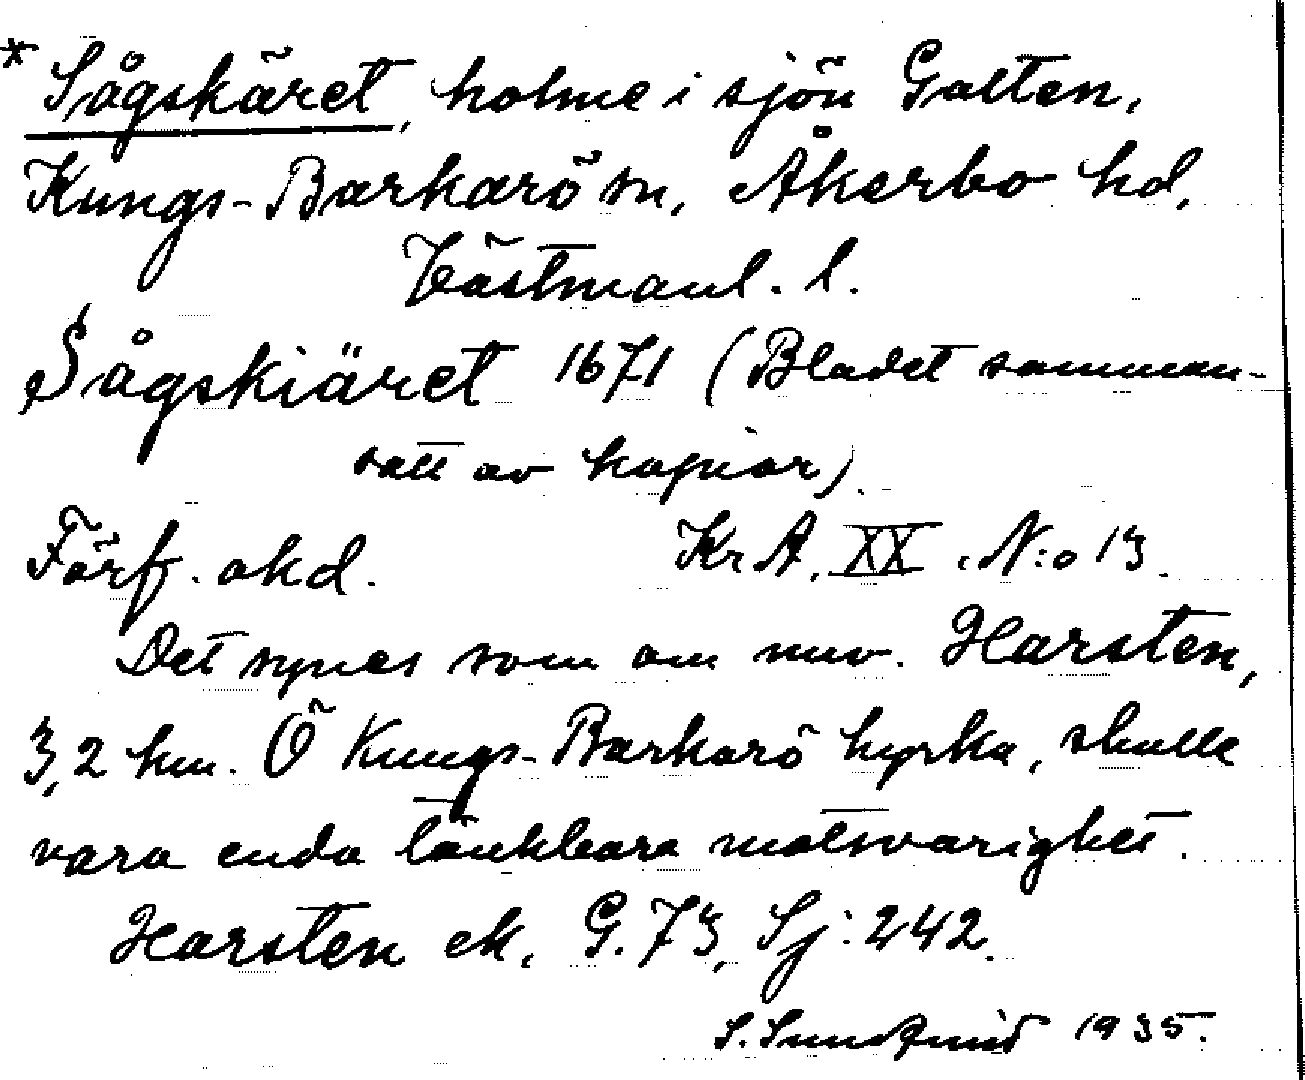 * Sågskäret, holme i sjön Galten,
Kungs-Barkarö sn, Åkerbo hd,
Västmanl. l.
Sågskiäret 1671 (Bladet samman-
satt av kopior).
Förf. okd. Kr A. XX. N:o 13.
Det synes som om nuv. Harsten,
3,2 km. Ö Kungs-Barkarö kyrka, skulle
vara enda tänkbara motsvarighet.
Harsten ek. G. 73, Sj: 242.
S. Sundqvist 1935.